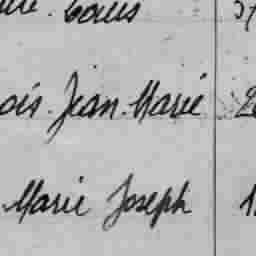 Louis
ois. Jean. Marie 2
Marie Joseph 1